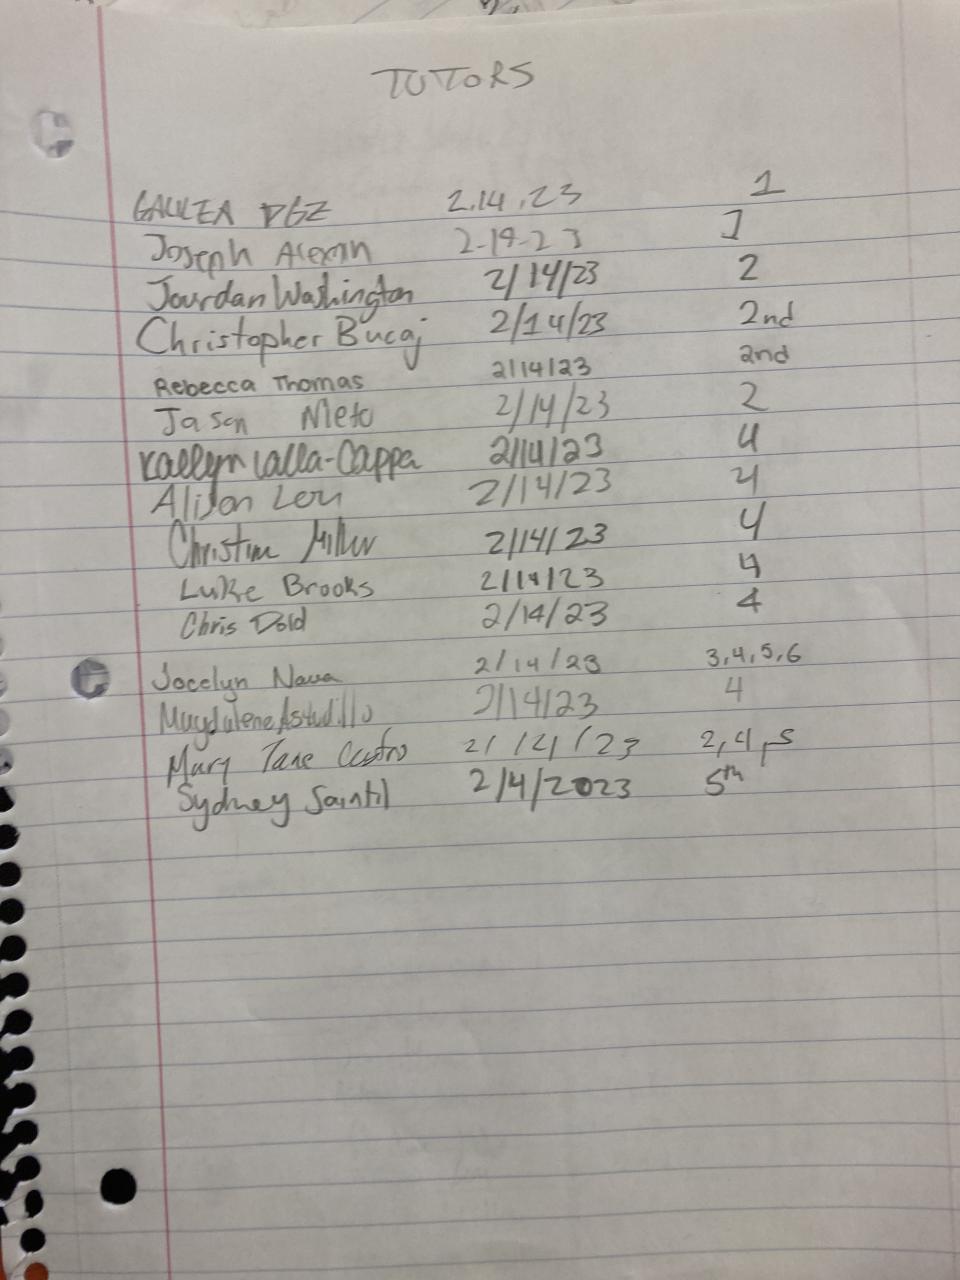 TUTORS
GALILEA DGZ 2.14.23 1
Joseph 2-14-23 1
Jourdan Washington 2/14/23 2
Christopher Bucaj 2/14/23 2nd
Rebecca Thomas 2/14/23 2nd
Jason 2/14/23 2
Kaelyn Lalla-Cappa 2/14/23 4
Alison 2/14/23 4
Christine Miller 2/14/23 4
Luke Brooks 2/14/23 4
Chris Dold 2/14/23 4
Jocelyn Nava 2/14/23 3,4,5,6
Magdalene Astudillo 2/14/23 4
Mary Jane Castro 2/14/23 2,4,5
Sydney Saintil 2/4/2023 5th